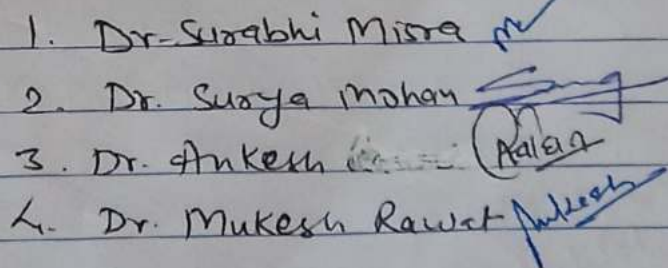 1. Dr-Surabhi Misra
2. Dr. Surya Mohan
3. Dr. Ankesh
4. Dr. Mukesh Rawat Mukesh